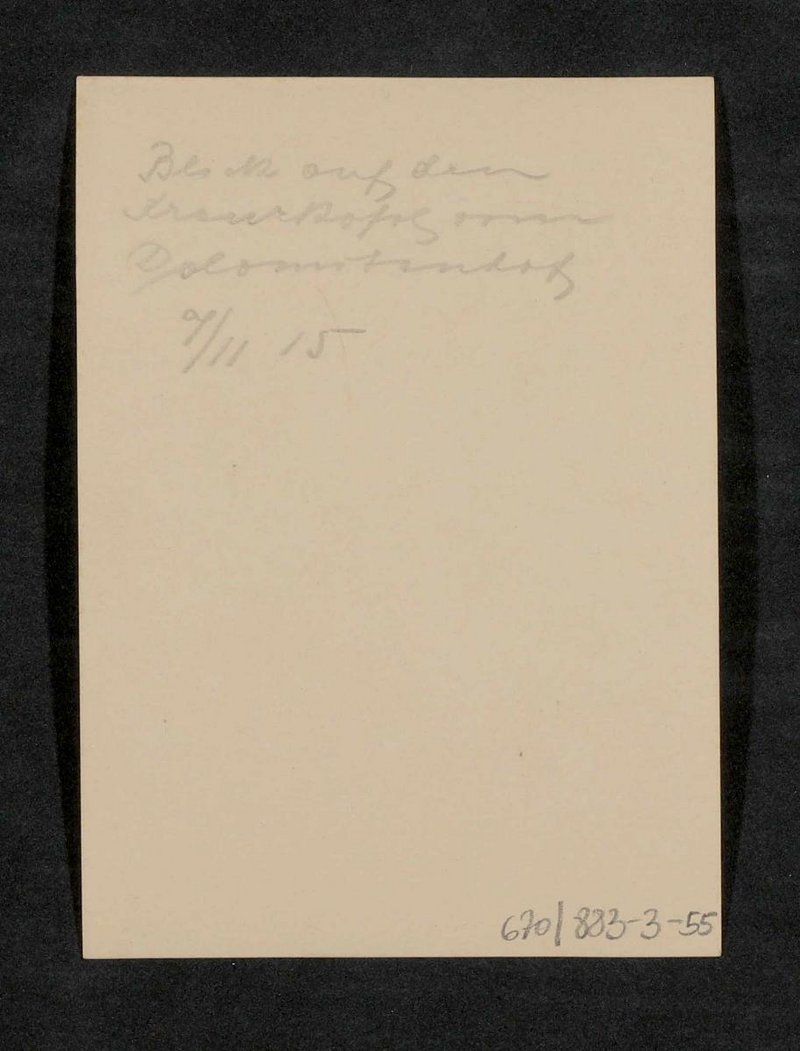 Blick auf den
vom
Dolomitenhof
9/11 15
670/883-3-55